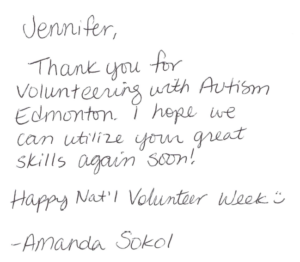 Jennifer,
Thank you for
volunteering with Autism
Edmonton. I hope we
can utilize your great
skills again soon!
Happy Nat'l Volunteer Week :)
-Amanda Sokol